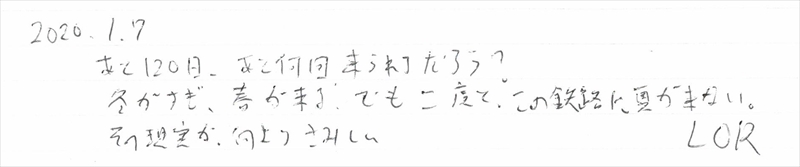 2020.1.7
あと120日、あと何回来られるだろう?
冬がすぎ、春が来る。でも二度と、この鉄路に夏が来ない。
その想実が、何よりさみしい
LOR